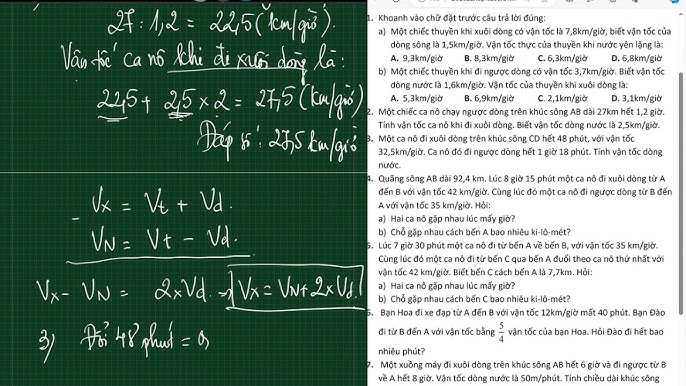 27 : 1,2 = 22,5 (km/giờ).
Vận tốc ca nô khi đi xuôi dòng là:
22,5 + 2,5 x 2 = 27,5 (km/giờ)
Đáp số: 27,5 km/giờ
Vx = Vt + Vd.
- VN = Vt - Vd.
Vx - VN = 2xVd. => Vx = VN + 2xVd.
3) Đổi 48 phút = 0,
1. Khoanh vào chữ đặt trước câu trả lời đúng:
a) Một chiếc thuyền khi xuôi dòng có vận tốc là 7,8km/giờ, biết vận tốc của
dòng sông là 1,5km/giờ. Vận tốc thực của thuyền khi nước yên lặng là:
A. 9,3km/giờ B. 8,3km/giờ C. 6,3km/giờ D. 6,8km/giờ
b) Một chiếc thuyền khi đi ngược dòng có vận tốc 3,7km/giờ. Biết vận tốc
dòng nước là 1,6km/giờ. Vận tốc của thuyền khi xuôi dòng là:
A. 5,3km/giờ B. 6,9km/giờ C. 2,1km/giờ D. 3,1km/giờ
2. Một chiếc ca nô chạy ngược dòng trên khúc sông AB dài 27km hết 1,2 giờ.
Tính vận tốc ca nô khi đi xuôi dòng. Biết vận tốc dòng nước là 2,5km/giờ.
3. Một ca nô đi xuôi dòng trên khúc sông CD hết 48 phút, với vận tốc
32,5km/giờ. Ca nô đó đi ngược dòng hết 1 giờ 18 phút. Tính vận tốc dòng
nước.
4. Quãng sông AB dài 92,4 km. Lúc 8 giờ 15 phút một ca nô đi xuôi dòng từ A
đến B với vận tốc 42 km/giờ. Cùng lúc đó một ca nô đi ngược dòng từ B đến
A với vận tốc 35 km/giờ. Hỏi:
a) Hai ca nô gặp nhau lúc mấy giờ?
b) Chỗ gặp nhau cách bến A bao nhiêu ki-lô-mét?
5. Lúc 7 giờ 30 phút một ca nô đi từ bến A về bến B, với vận tốc 35 km/giờ.
Cùng lúc đó một ca nô đi từ bến C qua bến A đuổi theo ca nô thứ nhất với
vận tốc 42 km/giờ. Biết bến C cách bến A là 7,7km. Hỏi:
a) Hai ca nô gặp nhau lúc mấy giờ?
b) Chỗ gặp nhau cách bến C bao nhiêu ki-lô-mét?
6. Bạn Hoa đi xe đạp từ A đến B với vận tốc 12km/giờ mất 40 phút. Bạn Đào
đi từ B đến A với vận tốc bằng 5/4 vận tốc của bạn Hoa. Hỏi Đào đi hết bao
nhiêu phút?
7. Một xuồng máy đi xuôi dòng trên khúc sông AB hết 6 giờ và đi ngược từ B
về A hết 8 giờ. Vận tốc dòng nước là 50m/phút. Tính chiều dài khúc sông